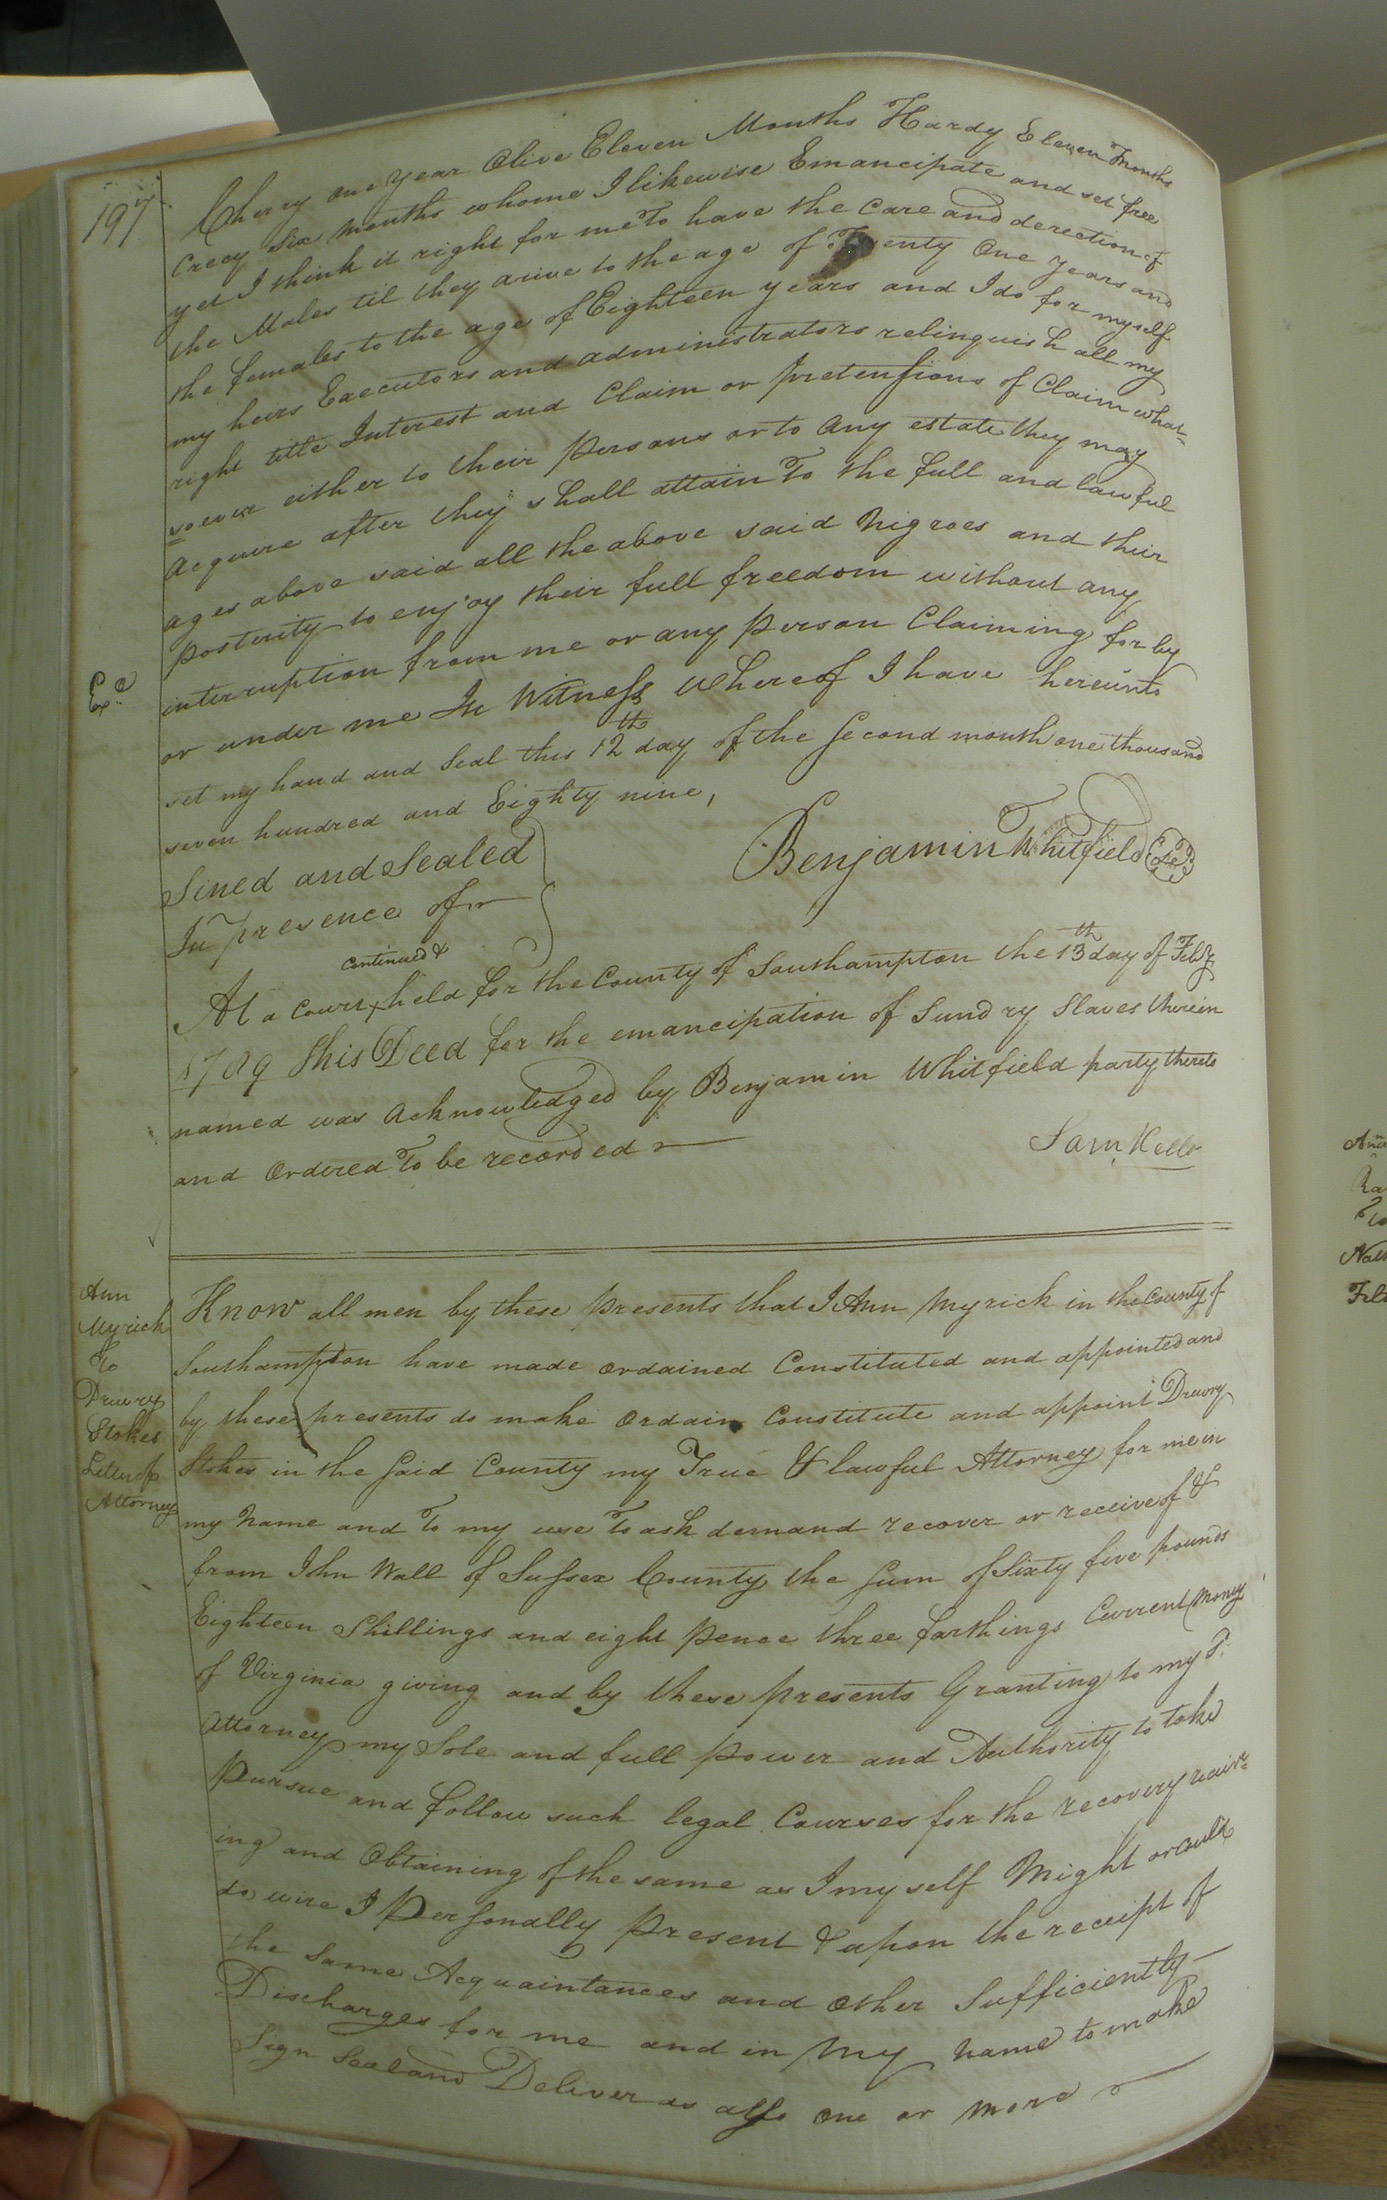 197
Cherry one year Olive Eleven Months Hardy Eleven Months
Creecy Six Months whome I likewise Emancipate and set free
yet I think it right for me To have the Care and derection of
the Males til they arive to the age of Twenty One years and
the females to the age of Eighteen years and I do for myself
my heirs Executors and administrators relinquish all my
right title Interest and Claim or pretensions of Claim what-
soever either to their persons or to any estate they may
acquire after they shall attain To the full and lawful
ages above said all the above said Nigroes and their
posterity to enjoy their full freedom without any
interruption from me or any person Claiming for by
Exd
or under me In Witness Whereof I have hereunto
set my hand and Seal this 12th day of the Second month one thousand
seven hundred and Eighty nine,
Sined and Sealed
In presence of
Benjamin Whitfield
At a Court continued & held for the County of Southampton the 13th day of Feby
1789 This Deed for the emancipation of Sundry Slaves therein
named was Acknowledged by Benjamin Whitfield party thereto
and Ordered To be recorded
Sam, Kello
Ann
Myrick
To
Drewry
Stokes
Letter of
Attorney
Know all men by these presents that I Ann Myrick in the County of
Southampton have made ordained Constituted and appointed and
by these presents do make Ordain Constitute and appoint Drewry
Stokes in the Said County my True & lawful Attorney for me in
my Name and To my use To ask demand recover or receive of &
from John Wall of Sussex County the Sum of Sixty five pounds
Eighteen Shillings and eight pence three farthings Current Money
of Virginia giving and by these presents Granting to my sd.
Attorney my Sole and full power and Authority to take
pursue and follow such legal Courses for the recovery
ing and Obtaining of the same as I myself Might or Could
do were I Personally present & upon the receipt of
the Same Acquaintances and Other Sufficiently
Discharges for me and in My name to make
Sign Seal and Deliver as also One or more